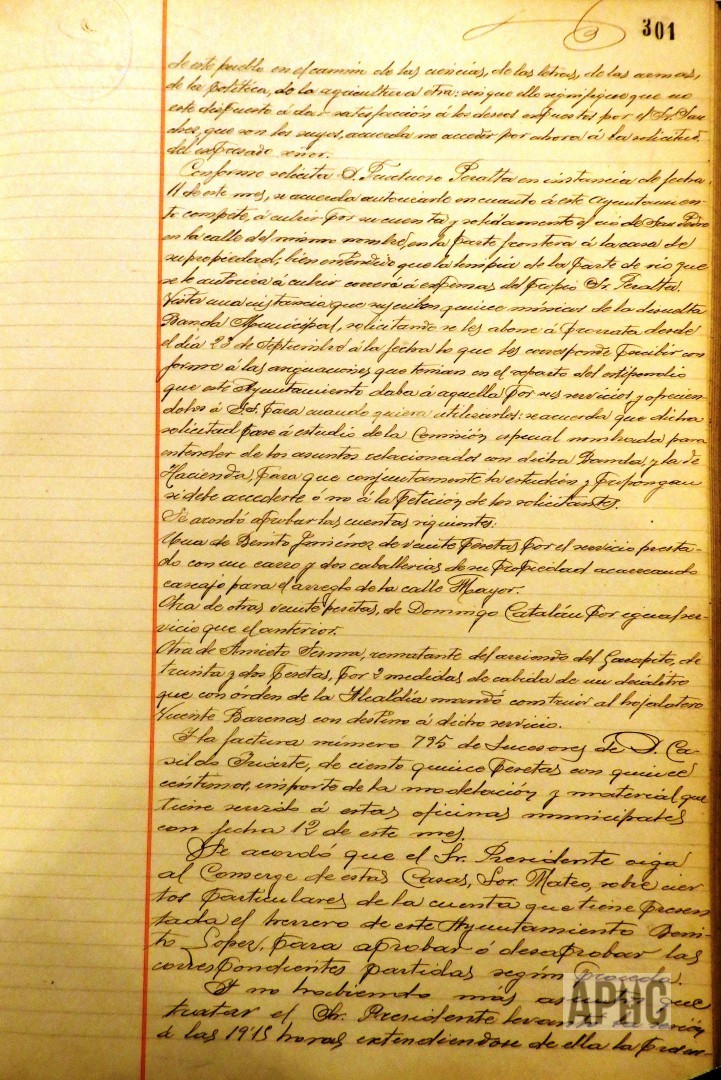 301
de este pueblo en el camino de las ciencias, de las letras, de las armas,
de la política, de la agricultura etra: sin que ello signifique que no
este dispuesto á dar satisfacción á los deseos expuestos por el Sr. San-
chez, que son los suyos, acuerda no acceder por ahora á la solicitud
del expresado señor.
Conforme solicita D. Fructuoso Peralta en instancia de fecha
11 de este mes, se acuerda autorizarle en cuanto á este Ayuntamien-
to compete, á cubrir por su cuenta y solidamente el rio de San Pedro
en la calle del mismo nombre, en la parte frontera á la casa de
su propiedad; bien entendido que la limpia de la parte de rio que
se le autoriza á cubrir correrá á expensas del propio Sr. Peralta.
Vista una instancia que suscriben quince músicos de la disuelta
Banda Municipal, solicitando se les abone á prorrata desde
el dia 23 de Septiembre á la fecha lo que les corresponde percibir con
forme á las asignaciones que tenian en el reparto del estipendio
que este Ayuntamiento daba á aquella por sus servicios, y ofrecien-
dose á S.S. para cuando quiera utilizarlos: se acuerda que dicha
solicitud pase á estudio de la Comisión especial nombrada para
entender de los asuntos relacionados con dicha Banda, y la de
Hacienda, para que conjuntamente la estudien y propongan
si debe accederse ó no á la petición de los solicitantes.
Se acordó aprobar las cuentas siguientes:
Una de Benito Jiménez de veinte pesetas por el servicio presta-
do con un carro y dos caballerias de su propiedad acarreando
cascajo para el arreglo de la calle Mayor.
Otra de otras veinte pesetas, de Domingo Catalán por igual ser-
vicio que el anterior.
Otra de Aniceto Serma, rematante del arriendo del Garapito, de
treinta y dos pesetas, por 2 medidas de cabida de un decálitro
que con órden de la Alcaldía mandó construir al hojalatero
Vicente Barenas con destino á dicho servicio.
Y la factura número 795 de Sucesores de D. Ca-
sildo Iriarte, de ciento quince pesetas con quince
céntimos, importe de la modelación y material que
tiene servido á estas oficinas municipales
con fecha 12 de este mes.
Se acordó que el Sr. Presidente oiga
al Conserge de estas Casas, Sor. Mateo, sobre cier-
tos particulares de la cuenta que tiene presen
tada el herrero de este Ayuntamiento Beni-
to Lopez, para aprobar ó desaprobar las
correspondientes partidas según proceda.
Y no habiendo más asuntos que
tratar el Sr. Presidente levantó la sesión
á las 19'15 horas extendiendose de ella la presen-
APHC